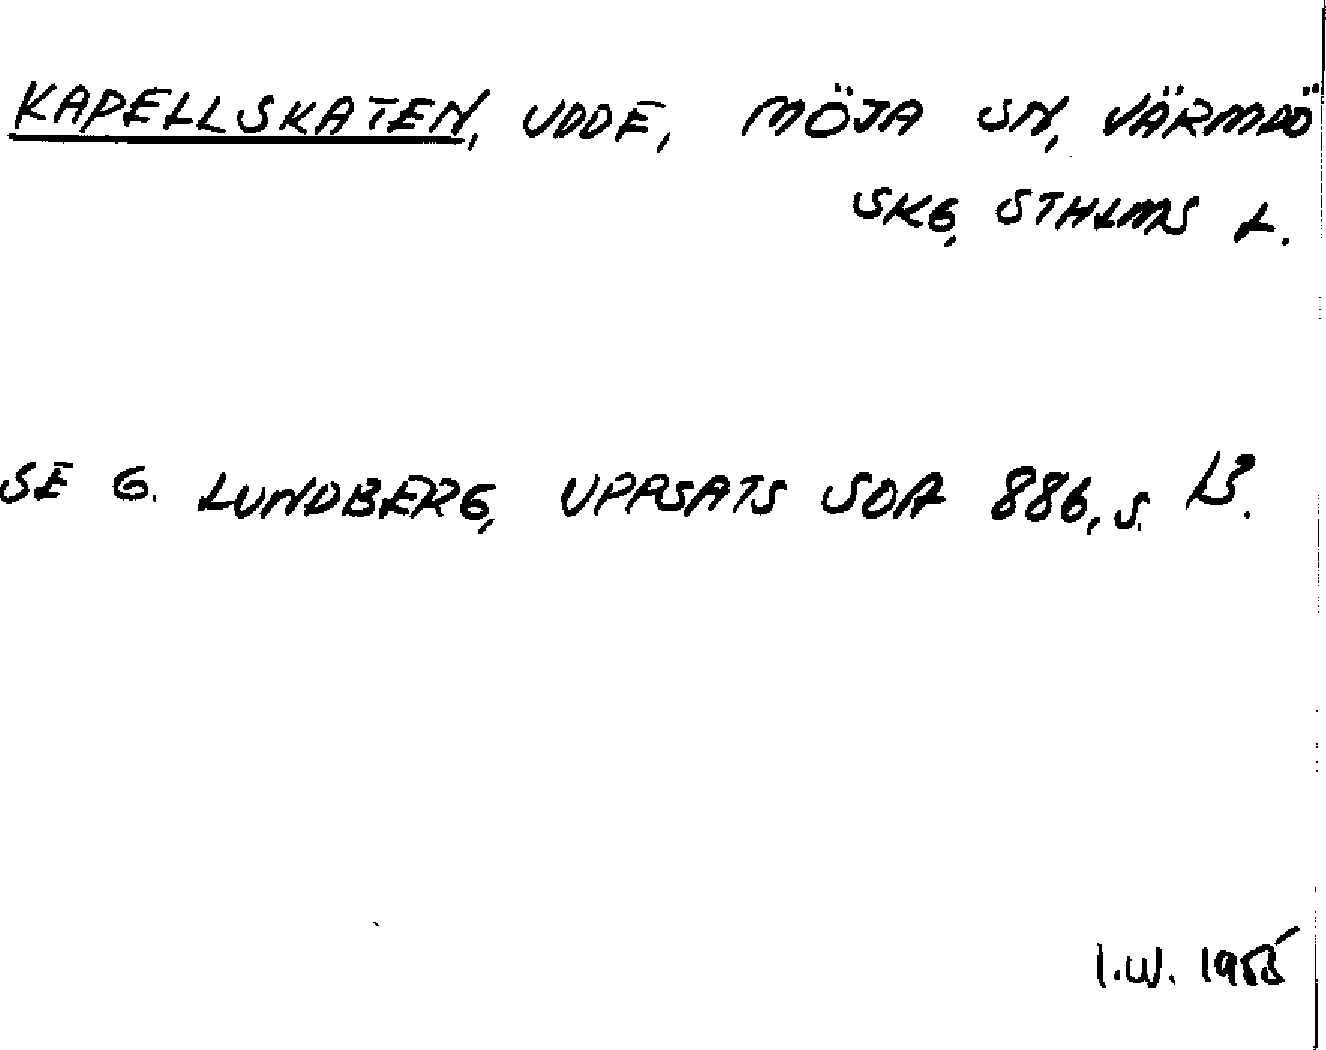 KAPELLSKATEN, UDDE, MÖJA SN, VÄRMDÖ
SKG, STHLMS L.
SE G. LUNDBERG, UPPSATS SOA 886, S. 13.
I.W.